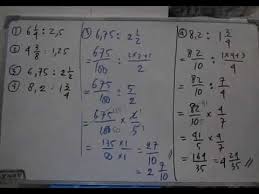 ① 6 1/4 : 2,5
② 4 3/8 : 1,25
③ 6,75 : 2 1/2
④ 8,2 : 1 3/4
③ 6,75 : 2 1/2
= 675/100 : 2×2+1/2
= 675/100 : 5/2
= 675/100 × 2/5
= 135 × 1/50 × 1
= 27/10
= 2 7/10
④ 8,2 : 1 3/4
= 82/10 : 1×4+3/4
= 82/10 : 7/4
= 82/10 × 4/7
= 41/5 × 4/7
= 164/35 = 4 24/35 //